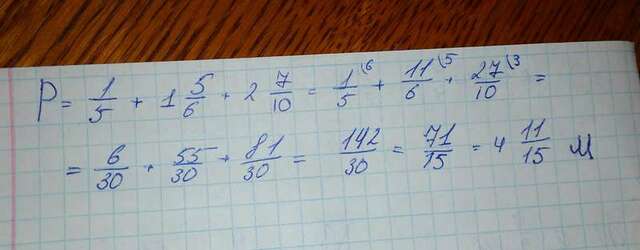 P = 1/5 + 1 5/6 + 2 7/10 = 1/5 \6 + 11/6 \5 + 27/10 \3 =
= 6/30 + 55/30 + 81/30 = 142/30 = 71/15 = 4 11/15 м